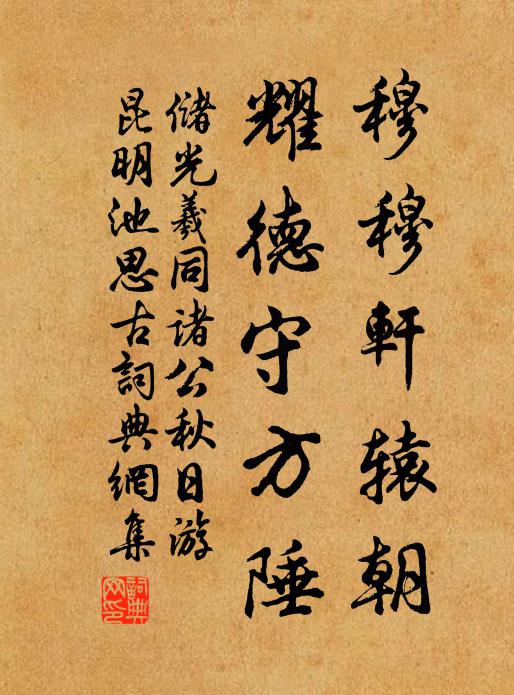 穆穆軒辕朝
耀德守方陲
儲光羲同諸公秋日游
昆明池思古詞典網集
詞典
网印